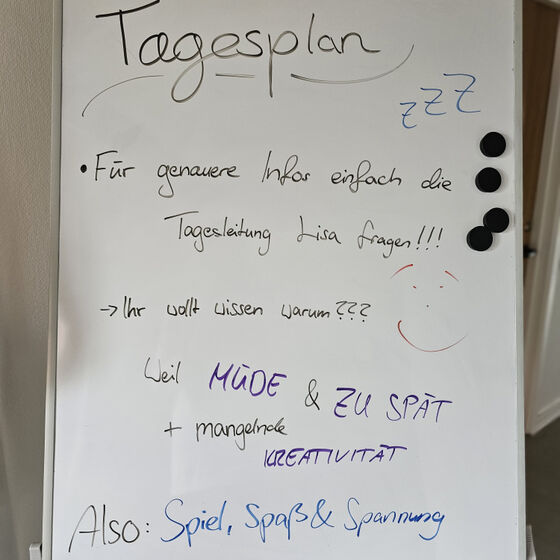 Tagesplan
z Z Z
• Für genauere Infos einfach die
Tagesleitung Lisa fragen!!!
→ Ihr wollt wissen warum???
Weil MÜDE & ZU SPÄT
+ mangelnde
KREATIVITÄT
Also: Spiel, Spaß & Spannung